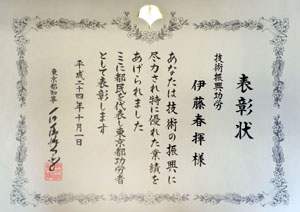 表彰状
技術振興功労
伊藤春揮様
あなたは技術の振興に
尽力され特に優れた業績を
あげられました
ここに都民を代表し東京都功労者
として表彰します
平成二十四年十月一日
東京都知事